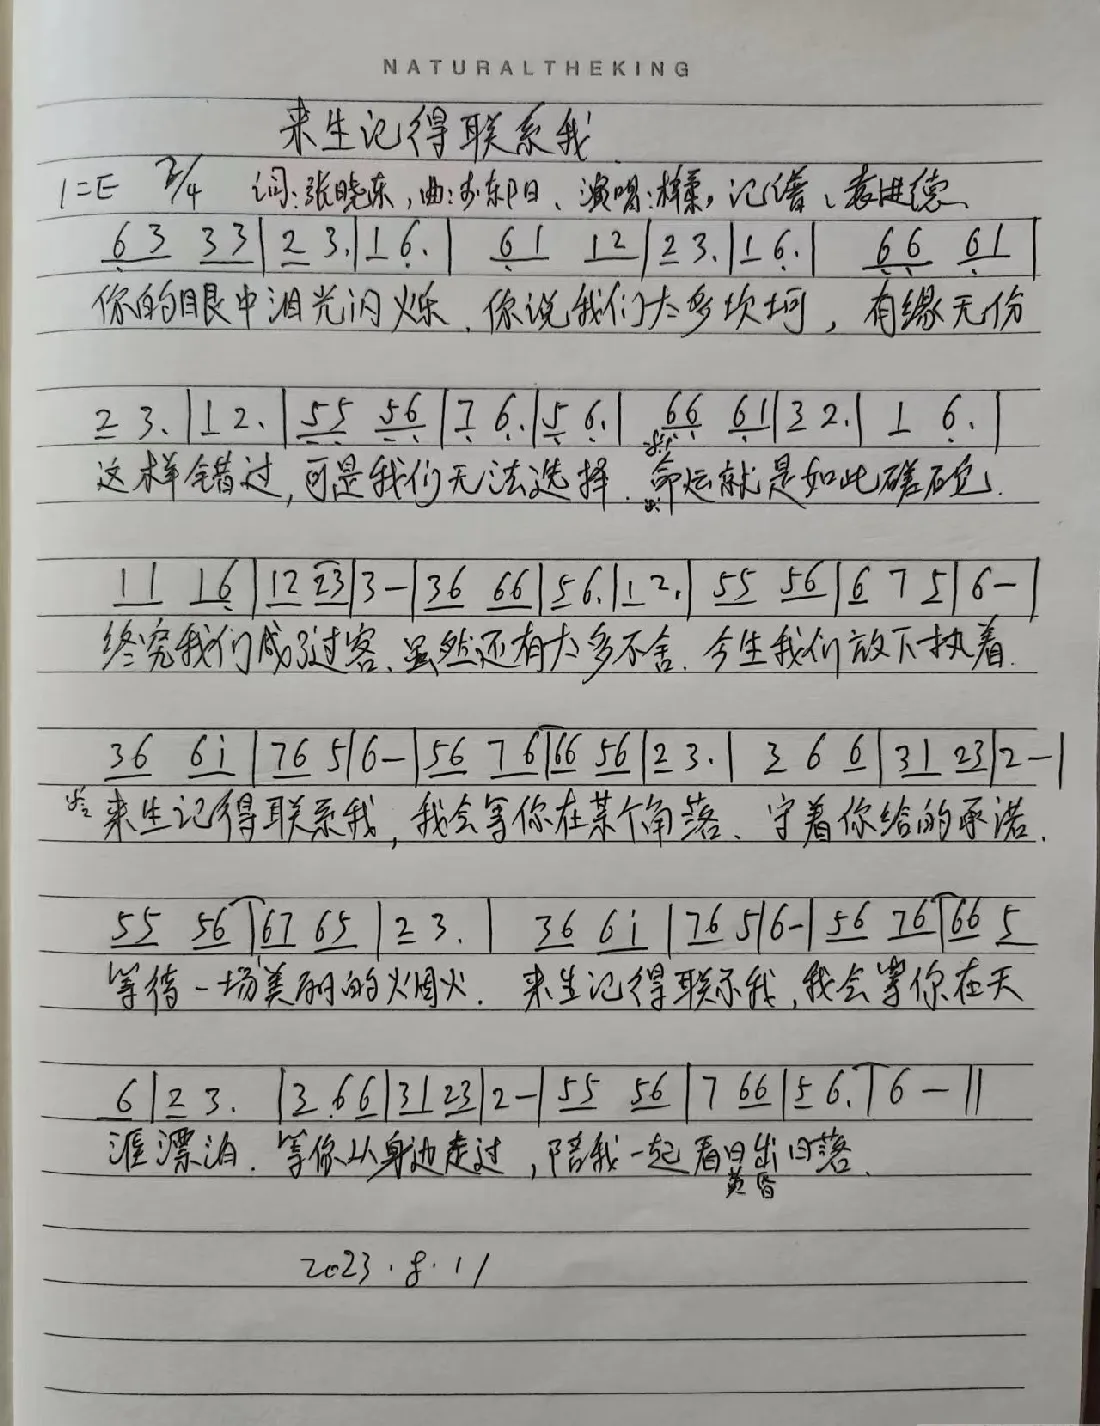 NATURALTHEKING
来生记得联系我
1=E 2/4 词:张晓东,曲: 东阳、演唱: 记谱、袁进德
63 33|23.|16.| 61 12|23.|16.| 66 61|
你的眼中泪光闪烁、你说我们太多坎坷,有缘无份
23.|12.|55 56|76.|56.| 66 61|32.|1 6.|
这样错过,可是我们无法选择.命运就是如此磋砣.
11 16|12 23|3-|36 66|56.|12.| 55 56|675|6-|
终究我们成了过客、虽然还有太多不舍.今生我们放下执着.
36 6i|76 5|6-|56 76|66 56|23.| 3 6 6|31 23|2-|
来生记得联系我,我会等你在某个角落、守着你给的承诺.
55 56|67 65|23.| 36 6i|76 5|6-|56 76|66 5
等待一场美丽的火烟火.来生记得联系我,我会等你在天
6|23. |3.66|31 23|2-|55 56|7 66|56.|6-||
涯漂泊.等你从身边走过,陪我一起看日出日落.
黄昏
2023.8.11